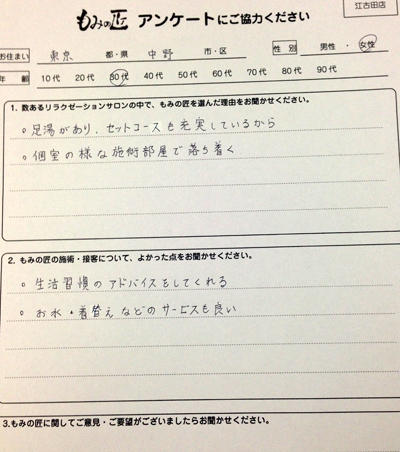 江古田店
もみの匠 アンケートにご協力ください
お住まい 東京 都・県 中野 市・区 性別 男性・女性
年齢 10代 20代 30代 40代 50代 60代 70代 80代 90代
1. 数あるリラクゼーションサロンの中で、もみの匠を選んだ理由をお聞かせください。
○足湯があり、セットコースも充実しているから
○個室の様な施術部屋で落ち着く
2. もみの匠の施術・接客について、よかった点をお聞かせください。
○生活習慣のアドバイスをしてくれる
○お水・着替えなどのサービスも良い
3.もみの匠に関してご意見・ご要望がございましたらお聞かせください。